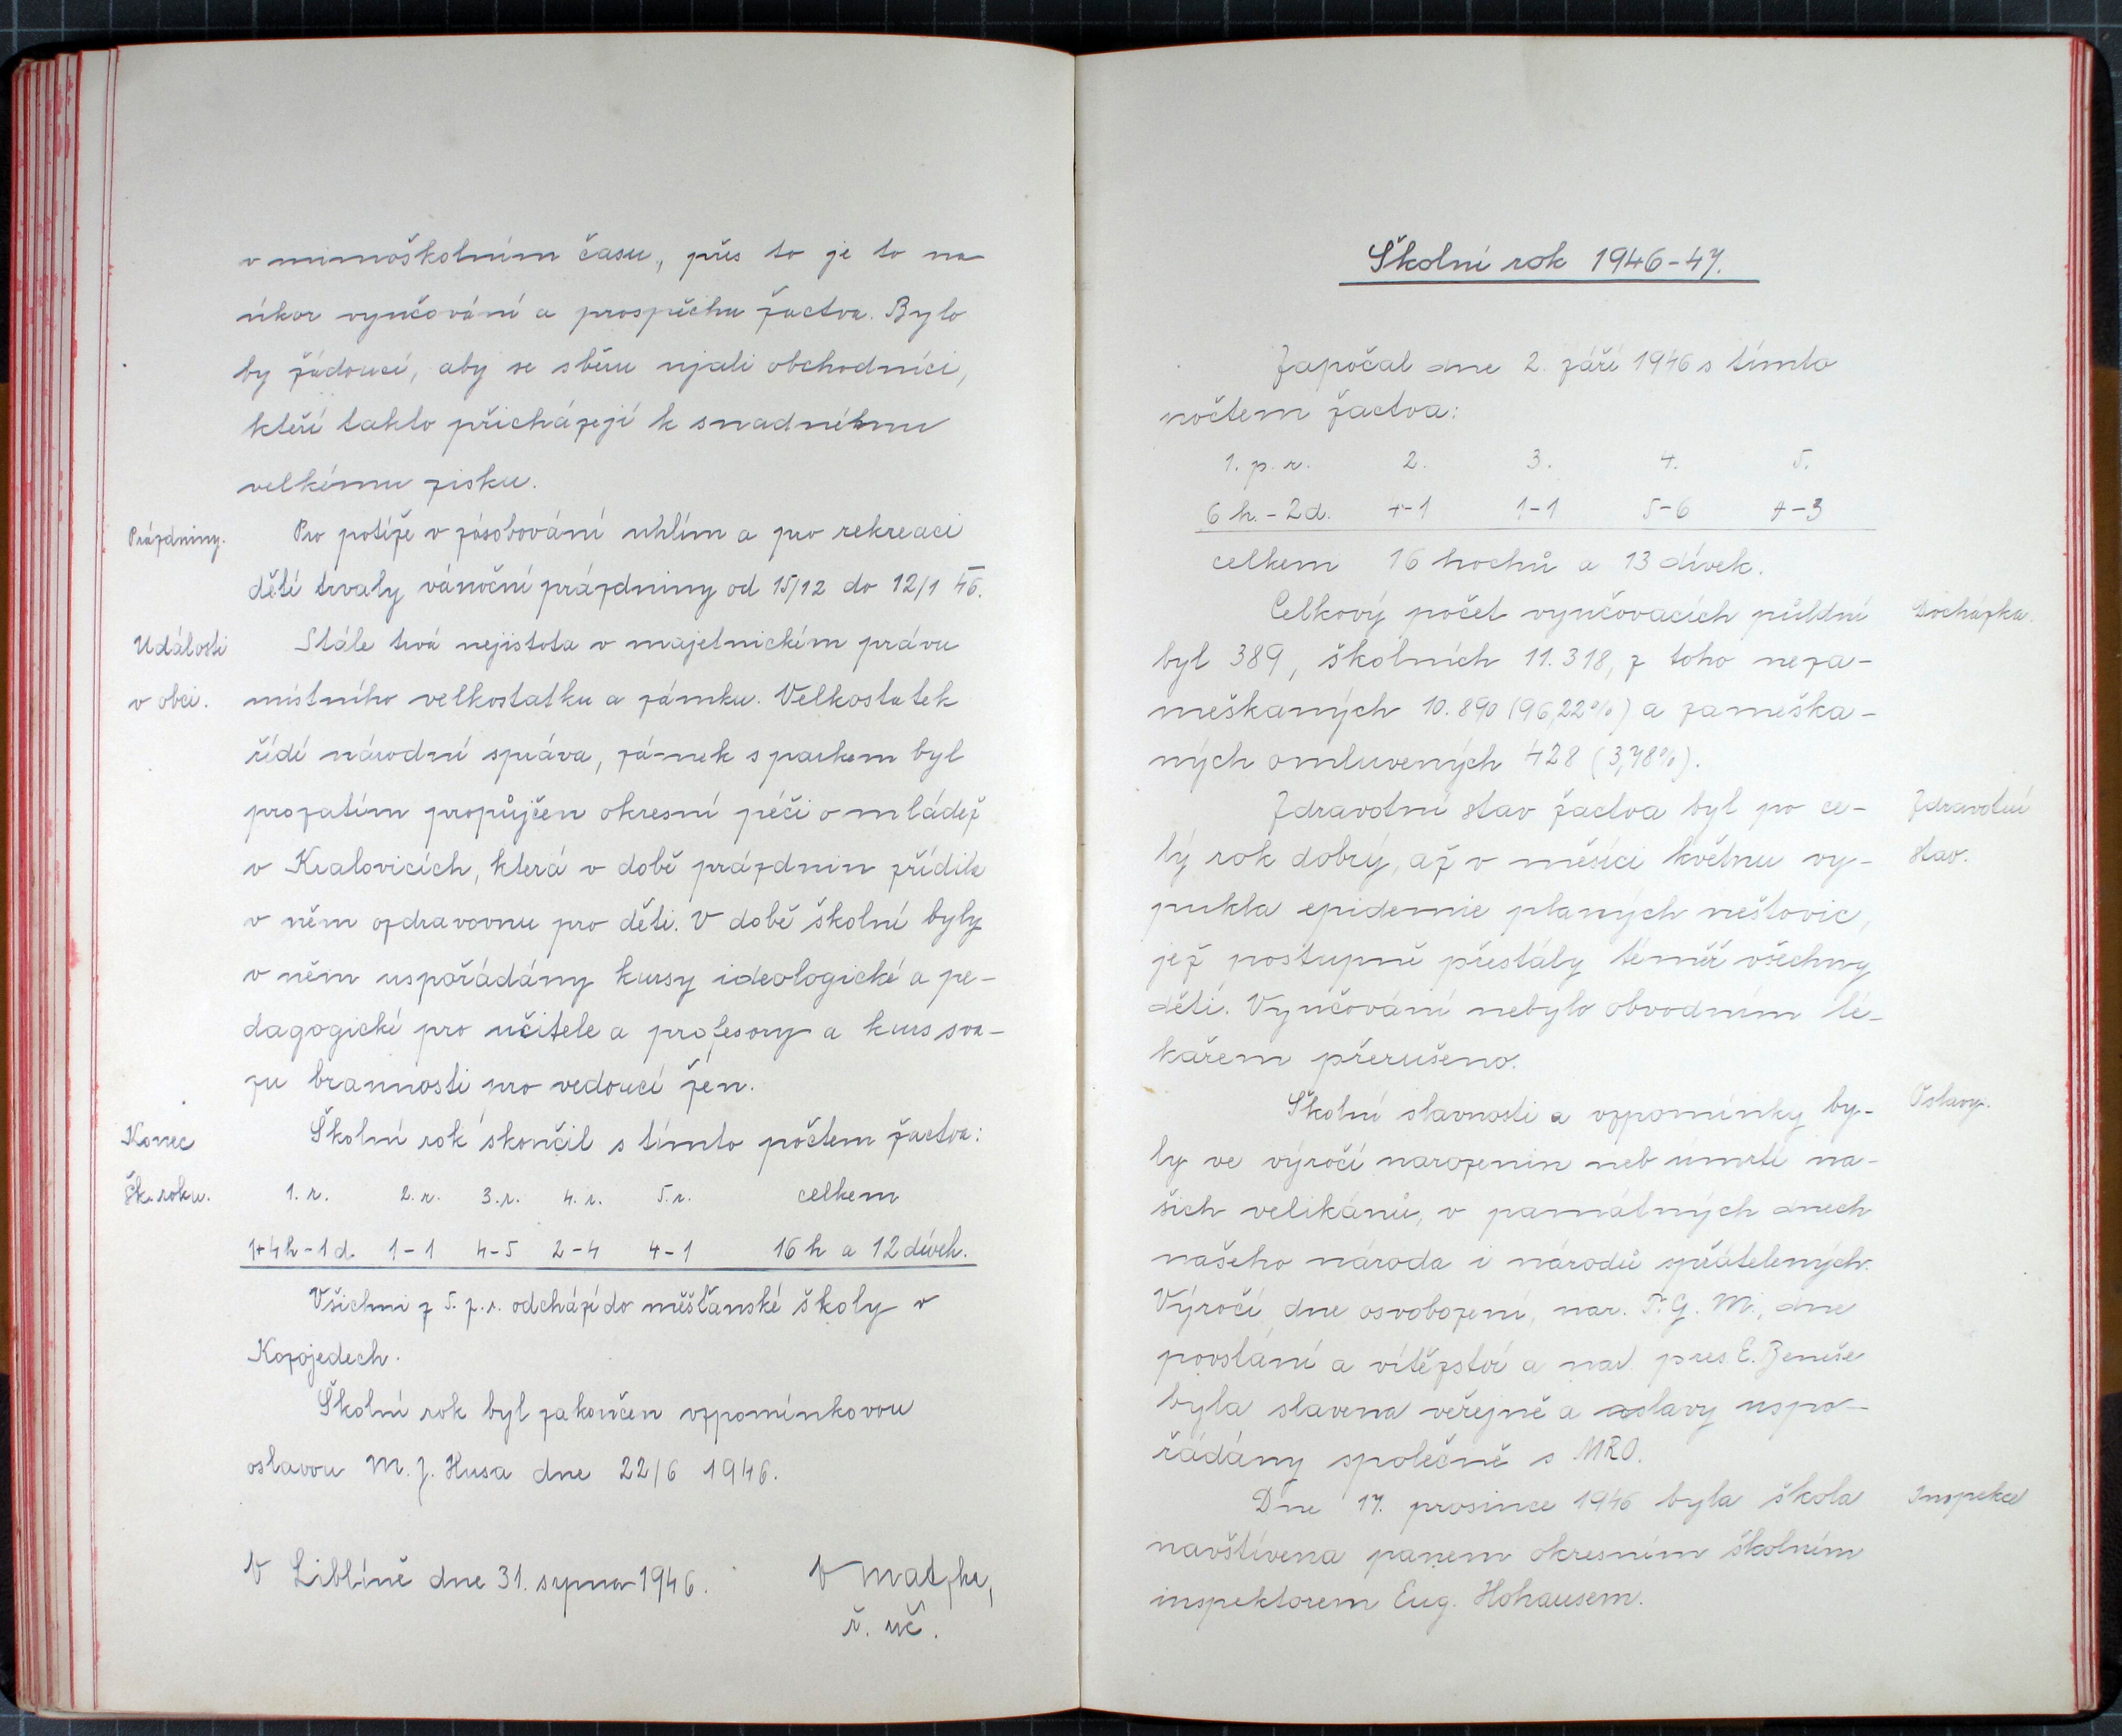 v mimoškolním času, přes to je to na
úkor vyučování a prospěchu žactva. Bylo
by žádoucí, aby se sběru ujali obchodníci,
kteří takto přicházejí k snadnému
velkému zisku.
Prázdniny.
Pro potíže v zásobování uhlím a pro rekreaci
dětí trvaly vánoční prázdniny od 15/12 do 12/1 46.
Události
v obci.
Stále trvá nejistota v majetnickém právu
místního velkostatku a zámku. Velkostatek
řídí národní správa, zámek s parkem byl
prozatím propůjčen okresní péči o mládež
v Kralovicích, která v době prázdnin zřídila
v něm ozdravovnu pro děti. V době školní byly
v něm uspořádány kursy ideologické a pe-
dagogické pro učitele a profesory a kurs sva-
zu brannosti pro vedoucí žen.
Konec
šk. roku.
Školní rok skončil s tímto počtem žactva:
1. r. 2. r. 3. r. 4. r. 5. r. celkem
1+4h-1d. 1-1 4-5 2-4 4-1 16 h a 12 dívek.
Všichni z 5. p. r. odchází do měšťanské školy v
Kozojedech.
Školní rok byl zakončen vzpomínkovou
oslavou M. J. Husa dne 22/6 1946.
V Liblíně dne 31. srpna 1946.
ř. uč.
Školní rok 1946-47.
Započal dne 2. září 1946 s tímto
počtem žactva:
1. p. r. 2. 3. 4. 5.
6 h. - 2 d. 4-1 1-1 5-6 4-3
celkem 16 hochů a 13 dívek.
Docházka.
Celkový počet vyučovacích půldní
byl 389, školních 11.318, z toho neza-
meškaných 10.890 (96,22%) a zameška-
ných omluvených 428 (3,78%).
Zdravotní
stav.
Zdravotní stav žactva byl po ce-
lý rok dobrý, až v měsíci květnu vy-
pukla epidemie planých neštovic,
jež postupně přestály téměř všechny
děti. Vyučování nebylo obvodním lé-
kařem přerušeno.
Oslavy.
Školní slavnosti a vzpomínky by-
ly ve výročí narozenin neb úmrtí na-
šich velikánů, v památných dnech
našeho národa i národů spřátelených.
Výročí dne osvobození, nar. T. G. M., dne
povstání a vítězství a nar. pres E. Beneše
byla slavena veřejně a oslavy uspo-
řádány společně s MRO.
Inspekce
Dne 17. prosince 1946 byla škola
navštívena panem okresním školním
inspektorem Eug. Hohausem.